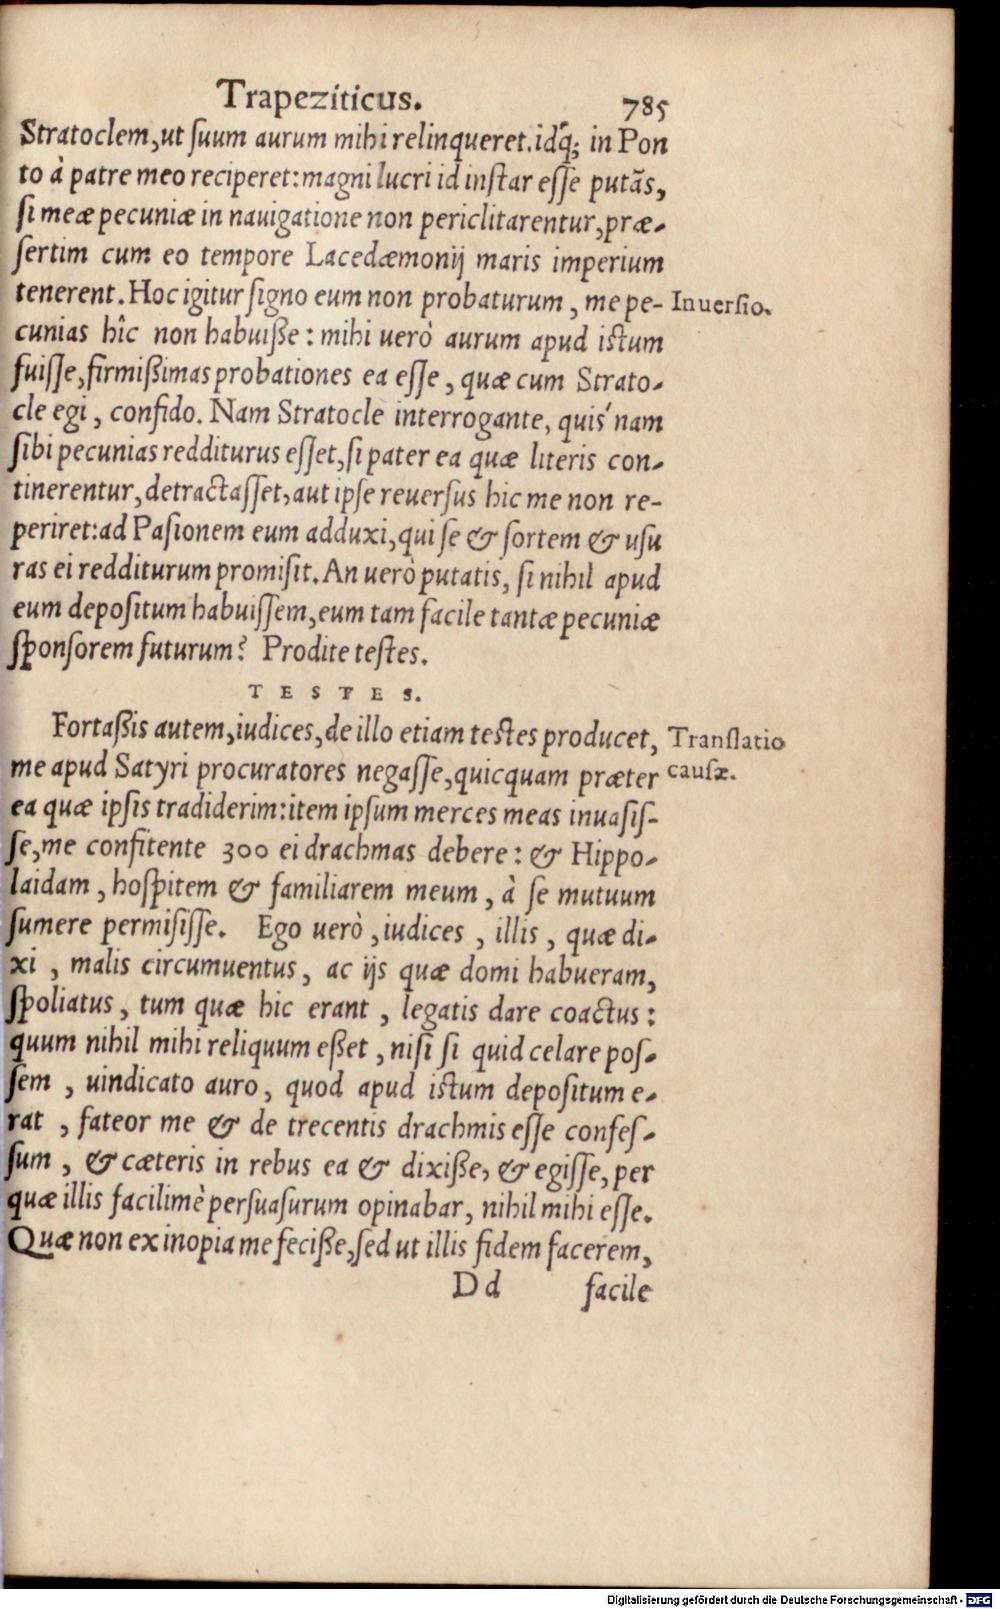 Trapeziticus. 785
Stratoclem, ut ſuum aurum mihi relinqueret. idq́; in Pon
to à patre meo reciperet: magni lucri id inſtar eſſe putãs,
ſi meæ pecuniæ in nauigatione non periclitarentur, præ-
ſertim cum eo tempore Lacedæmonij maris imperium
tenerent. Hoc igitur ſigno eum non probaturum, me pe- Inuerſio.
cunias hîc non habuiße: mihi uerò aurum apud iſtum
fuiſſe, firmißimas probationes ea eſſe, quæ cum Strato-
cle egi, confido. Nam Stratocle interrogante, quis´nam
ſibi pecunias redditurus eſſet, ſi pater ea quæ literis con-
tinerentur, detractaſſet, aut ipſe reuerſus hic me non re-
periret: ad Paſionem eum adduxi, qui ſe & ſortem & uſu
ras ei redditurum promiſit. An uerò putatis, ſi nihil apud
eum depoſitum habuiſſem, eum tam facile tantæ pecuniæ
ſponſorem futurum? Prodite teſtes.
TESTES.
Fortaßis autem, iudices, de illo etiam teſtes producet, Tranſlatio
me apud Satyri procuratores negaſſe, quicquam præter cauſæ.
ea quæ ipſis tradiderim: item ipſum merces meas inuaſiſ-
ſe, me confitente 300 ei drachmas debere: & Hippo-
laidam, hoſpitem & familiarem meum, à ſe mutuum
ſumere permiſiſſe. Ego uerò, iudices, illis, quæ di-
xi, malis circumuentus, ac ijs quæ domi habueram,
ſpoliatus, tum quæ hic erant, legatis dare coactus:
quum nihil mihi reliquum eßet, niſi ſi quid celare poſ-
ſem, uindicato auro, quod apud iſtum depoſitum e-
rat, fateor me & de trecentis drachmis eſſe confeſ-
ſum, & cæteris in rebus ea & dixiße, & egiſſe, per
quæ illis facilimè perſuaſurum opinabar, nihil mihi eſſe.
Quæ non ex inopia me feciße, ſed ut illis fidem facerem,
Dd facile
Digitalisierung gefördert durch die Deutsche Forschungsgemeinschaft - DFG